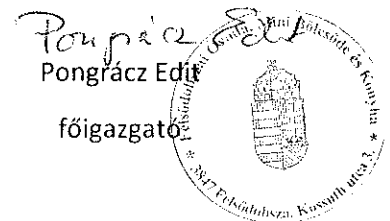 Pongrácz Edit
Pongrácz Edit
főigazgató
Felsődobszai Óvoda, Mini Bölcsőde és Konyha
* 3847 Felsődobsza, Kossuth utca 3. *